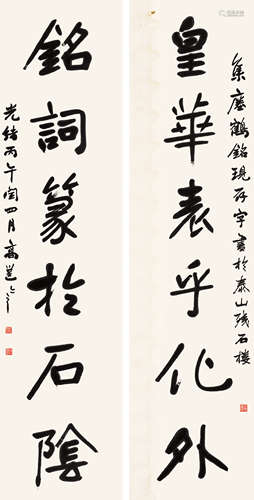 集瘗鹤銘現存字書於泰山殘石樓
皇華表乎化外
銘詞篆於石陰
光緒丙午閏四月高邕